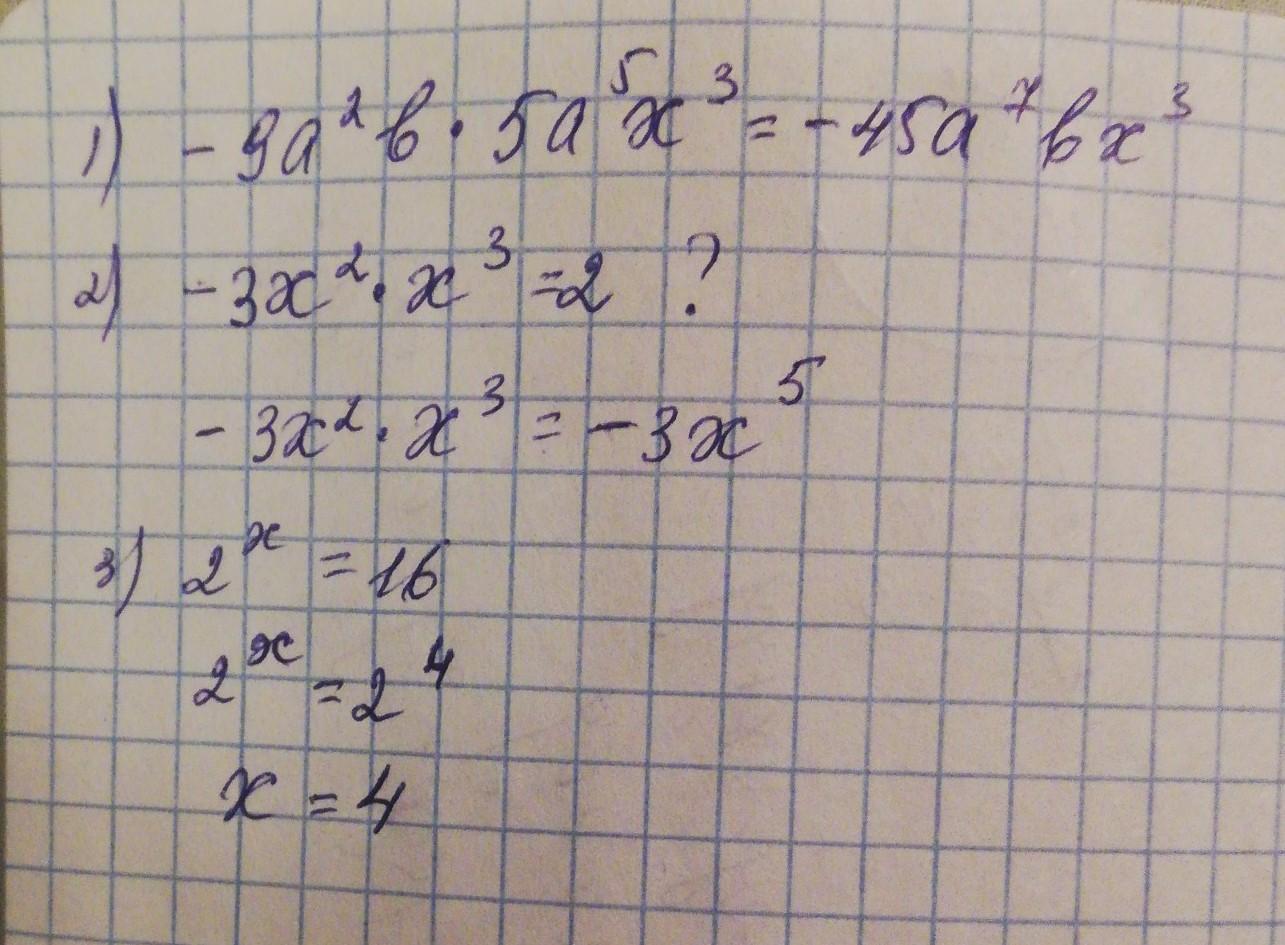 1) -9a²b · 5a⁵x³ = -45a⁷bx³
2) -3x² · x³ =2 ?
-3x² · x³ = -3x⁵
3) 2ˣ = 16
2ˣ = 2⁴
x = 4